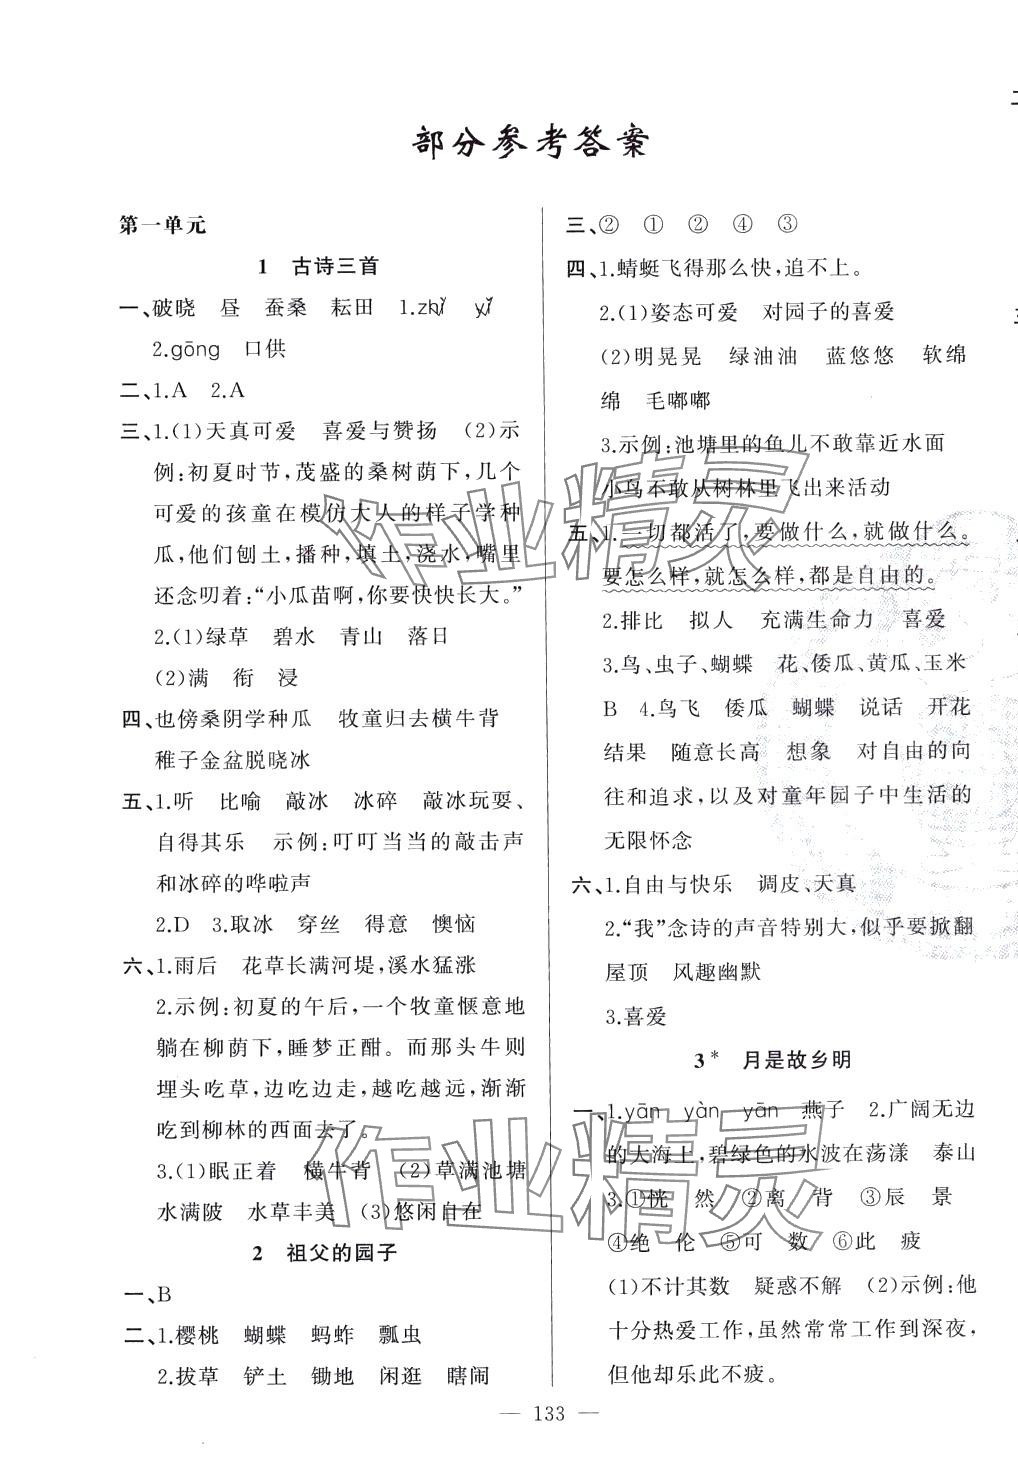 部分参考答案
第一单元
1 古诗三首
一、破晓 昼 蚕桑 耘田 1.zhǐ yǐ
2.gōng 口供
二、1.A 2.A
三、1.(1)天真可爱 喜爱与赞扬 (2)示
例:初夏时节,茂盛的桑树荫下,几个
可爱的孩童在模仿大人的样子学种
瓜,他们刨土,播种,填土,浇水,嘴里
还念叨着:“小瓜苗啊,你要快快长大。”
2.(1)绿草 碧水 青山 落日
(2)满 衔 浸
四、也傍桑阴学种瓜 牧童归去横牛背
稚子金盆脱晓冰
五、1.听 比喻 敲冰 冰碎 敲冰玩耍、
自得其乐 示例:叮叮当当的敲击声
和冰碎的哗啦声
2.D 3.取冰 穿丝 得意 懊恼
六、1.雨后 花草长满河堤,溪水猛涨
2.示例:初夏的午后,一个牧童惬意地
躺在柳荫下,睡梦正酣。而那头牛则
埋头吃草,边吃边走,越吃越远,渐渐
吃到柳林的西面去了。
3.(1)眠正着 横牛背 (2)草满池塘
水满陂 水草丰美 (3)悠闲自在
2 祖父的园子
一、B
二、1.樱桃 蝴蝶 蚂蚱 瓢虫
2.拔草 铲土 锄地 闲逛 瞎闹
三、② ① ② ④ ③
四、1.蜻蜓飞得那么快,追不上。
2.(1)姿态可爱 对园子的喜爱
(2)明晃晃 绿油油 蓝悠悠 软绵
绵 毛嘟嘟
3.示例:池塘里的鱼儿不敢靠近水面
小鸟不敢从树林里飞出来活动
五、1.一切都活了,要做什么,就做什么。
要怎么样,就怎么样,都是自由的。
2.排比 拟人 充满生命力 喜爱
3.鸟、虫子、蝴蝶 花、倭瓜、黄瓜、玉米
B 4.鸟飞 倭瓜 蝴蝶 说话 开花
结果 随意长高 想象 对自由的向
往和追求,以及对童年园子中生活的
无限怀念
六、1.自由与快乐 调皮、天真
2.“我”念诗的声音特别大,似乎要掀翻
屋顶 风趣幽默
3.喜爱
3* 月是故乡明
一、1.yān yàn yān 燕子 2.广阔无边
的大海上,碧绿色的水波在荡漾 泰山
3.①恍 然 ②离 背 ③辰 景
④绝 伦 ⑤可 数 ⑥此 疲
(1)不计其数 疑惑不解 (2)示例:他
十分热爱工作,虽然常常工作到深夜,
但他却乐此不疲。
— 133 —
作业精灵
作业精灵